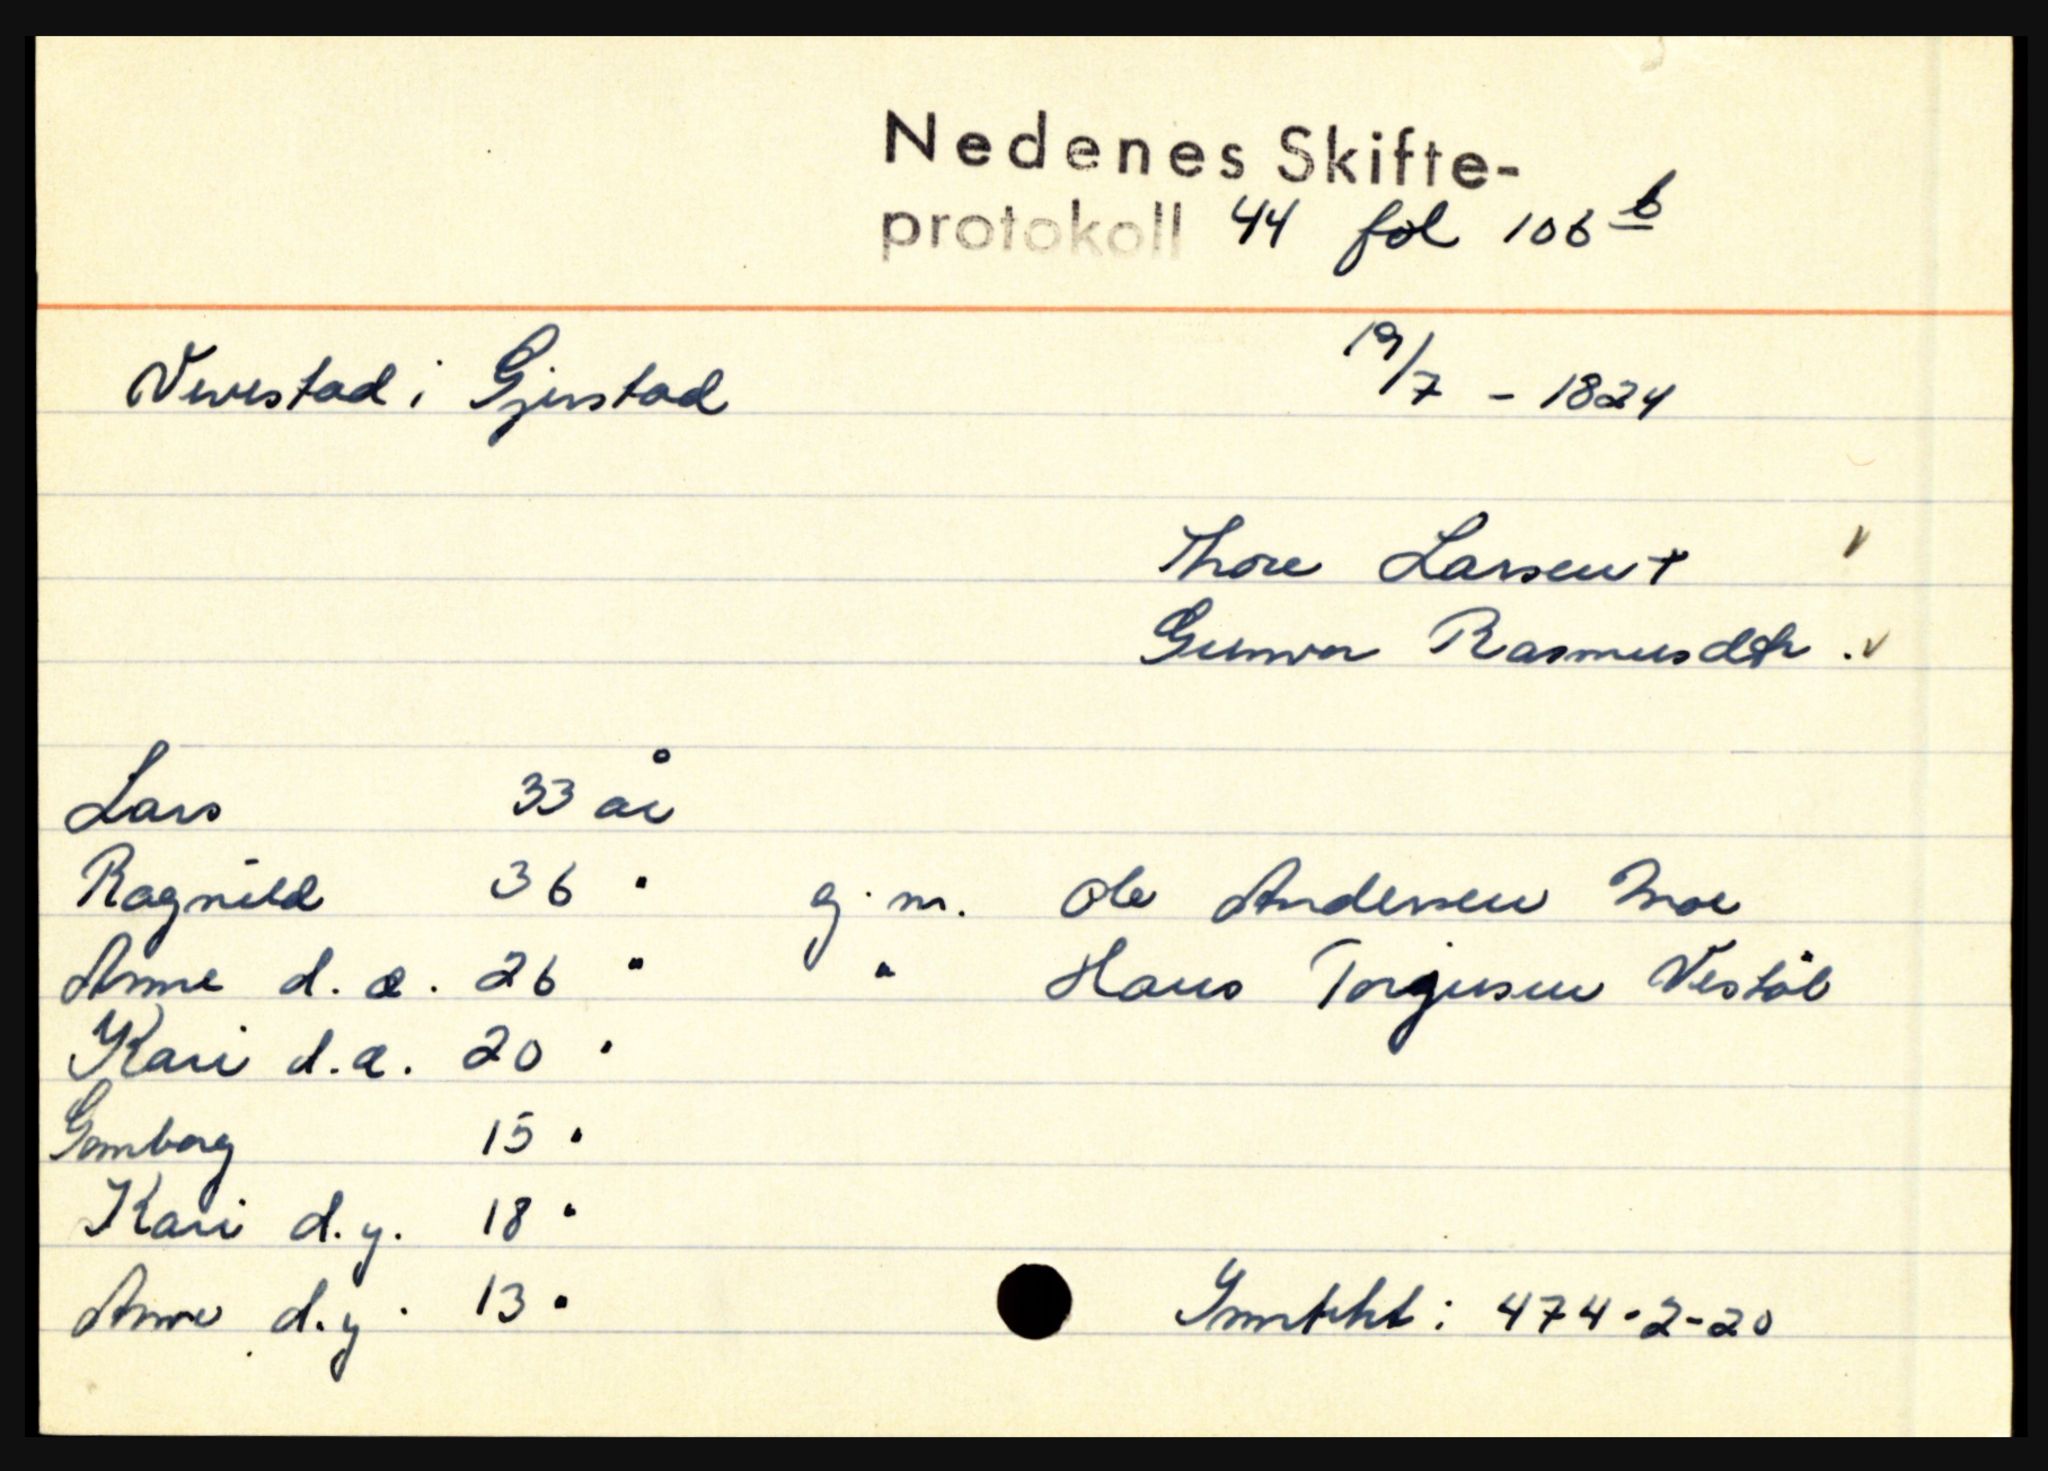 Nedenes Skifte-
protokoll 44 fol 106 b
Vevestad i Gjerstad 19/7 - 1824
Thore Larsen +
Gunvor Rasmusdtr.
Lars 33 år
Ragnild 36 " g. m. Ole Andersen Moe
Anne d. e. 26 " " Hans Torjusen Vestöl
Kari d. e. 20 "
Gunborg 15 "
Kari d. y. 18 "
Anne d. y. 13 "
Inntekt: 474-2-20